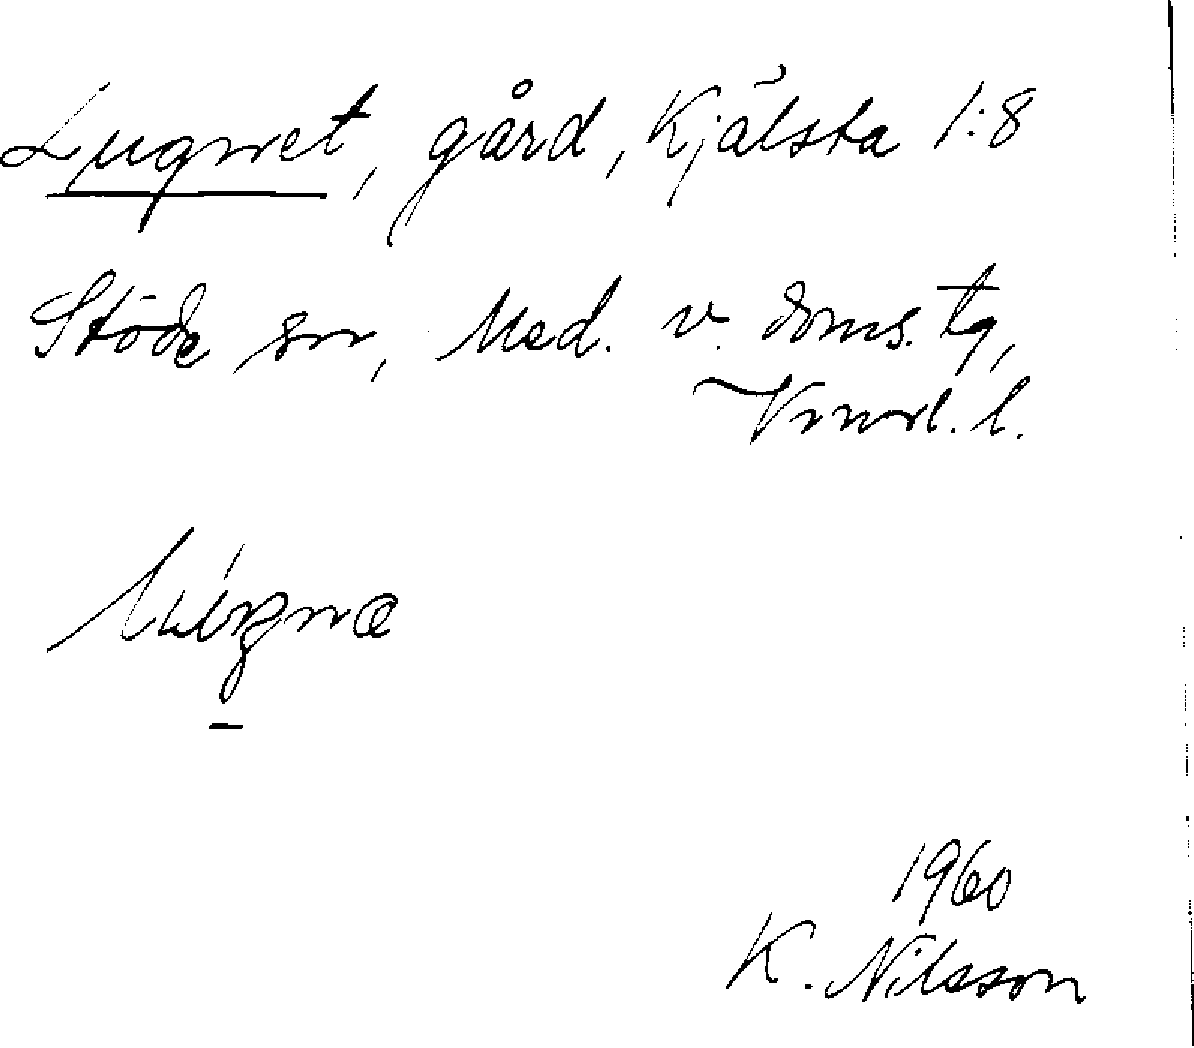 Lugnet, gård, Kjälsta 1:8
Stöde sn, Med. v. doms. tg,
Vnorrl. l.
1960
K. Nilsson